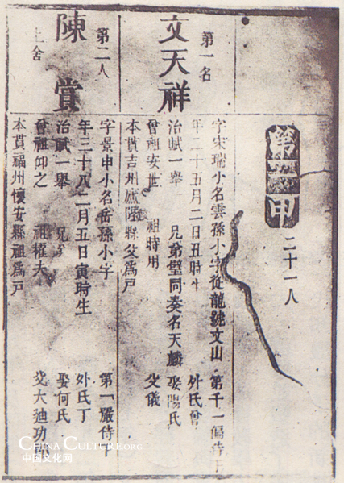 第一甲 二十一人
第一名
文天祥
字宋瑞小名雲孫小字從龍號文山 第千一偏侍下
年二十五月二日丑時生 外氏曾
治賦一舉 兄弟壁同奏名天麟 娶陽氏
曾祖安世 祖時用 父儀
本貫吉州廬陵縣父為戶
第二人
陳賞
上舍
字景申小名岳孫小字 第一嚴侍下
年二十八二月五日寅時生 外氏丁
治賦一舉 兄弟 娶何氏
曾祖仰之 祖權夫 父大迪功
本貫福州懷安縣祖為戶
CHINACULTURE.ORG
中国文化网